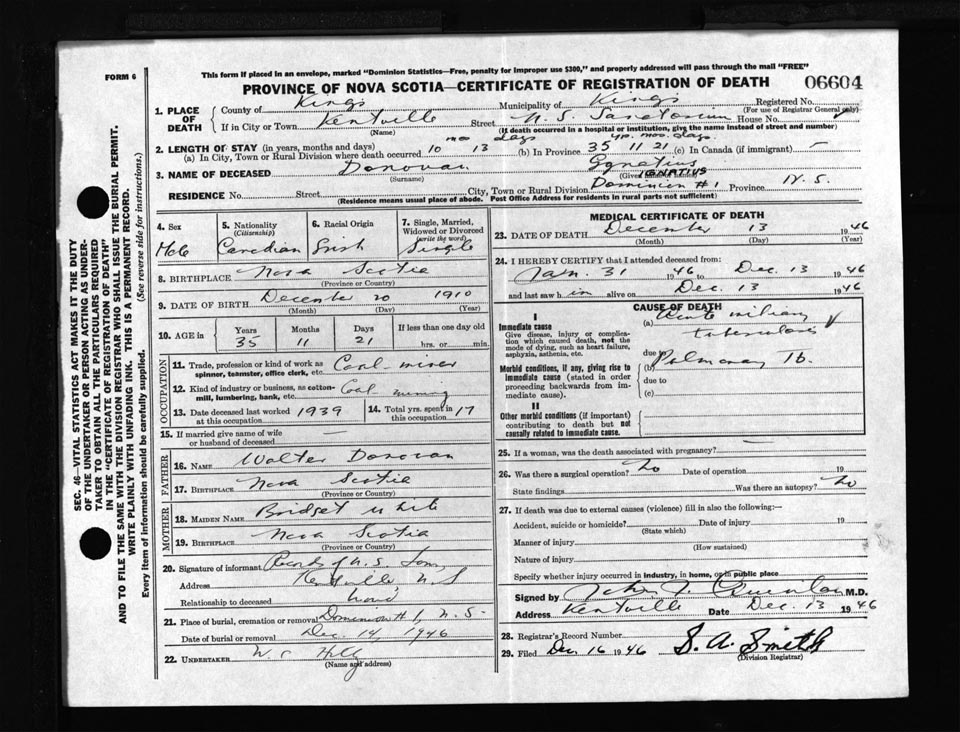 FORM 6
This form if placed in an envelope, marked "Dominion Statistics—Free, penalty for improper use $300," and properly addressed will pass through the mail "FREE"
PROVINCE OF NOVA SCOTIA—CERTIFICATE OF REGISTRATION OF DEATH 06604
1. PLACE OF DEATH
County of Kings Municipality of Kings Registered No.
(For use of Registrar General only)
If in City or Town Kentville Street N. S. Sanatorium House No.
(Name) (If death occurred in a hospital or institution, give the name instead of street and number)
mo days yr. mos. days.
2. LENGTH OF STAY (in years, months and days)
(a) In City, Town or Rural Division where death occurred 10 13 (b) In Province 35 11 21 (c) In Canada (if immigrant) —
3. NAME OF DECEASED Donovan Ignatius IGNATIUS
(Surname)
RESIDENCE No. Street City, Town or Rural Division Dominion #1 Province N.S.
(Residence means usual place of abode. Post Office Address for residents in rural parts not sufficient)
4. Sex
Male
5. Nationality
(Citizenship)
Canadian
6. Racial Origin
Irish
7. Single, Married, Widowed or Divorced
(write the word)
Single
8. BIRTHPLACE Nova Scotia
(Province or Country)
9. DATE OF BIRTH December 20 1910
(Month) (Day) (Year)
10. AGE in Years Months Days If less than one day old
35 11 21 hrs. or min.
OCCUPATION
11. Trade, profession or kind of work as spinner, teamster, office clerk, etc. Coal-miner
12. Kind of industry or business, as cotton-mill, lumbering, bank, etc. Coal mining
13. Date deceased last worked at this occupation 1939
14. Total yrs. spent in this occupation 17
15. If married give name of wife or husband of deceased —
FATHER
16. NAME Walter Donovan
17. BIRTHPLACE Nova Scotia
(Province or Country)
MOTHER
18. MAIDEN NAME Bridget White
19. BIRTHPLACE Nova Scotia
(Province or Country)
20. Signature of informant Records of N.S. San
Address Kentville N.S
Relationship to deceased
21. Place of burial, cremation or removal Dominion #1, N.S.
Date of burial or removal Dec. 14, 1946
22. UNDERTAKER W. C
(Name and address)
MEDICAL CERTIFICATE OF DEATH
23. DATE OF DEATH December 13 1946
(Month) (Day) (Year)
24. I HEREBY CERTIFY that I attended deceased from:
Jan. 31 1946 to Dec. 13 1946
and last saw h im alive on Dec. 13 1946
CAUSE OF DEATH
I
Immediate cause
Give disease, injury or complication which caused death, not the mode of dying, such as heart failure, asphyxia, asthenia, etc.
(a) Acute miliary tuberculosis
due to
Morbid conditions, if any, giving rise to immediate cause (stated in order proceeding backwards from immediate cause).
(b) Pulmonary tb.
due to
(c)
II
Other morbid conditions (if important) contributing to death but not causally related to immediate cause.
25. If a woman, was the death associated with pregnancy? —
26. Was there a surgical operation? No Date of operation 19
State findings Was there an autopsy? No
27. If death was due to external causes (violence) fill in also the following:—
Accident, suicide or homicide? Date of injury 19
(State which)
Manner of injury
(How sustained)
Nature of injury
Specify whether injury occurred in industry, in home, or in public place
Signed by John J. Quinlan M.D.
Address Kentville Date Dec. 13 1946
28. Registrar's Record Number
29. Filed Dec 16 1946 S. A. Smith
(Division Registrar)
SEC. 46—VITAL STATISTICS ACT MAKES IT THE DUTY
OF THE UNDERTAKER OR PERSON ACTING AS UNDER-
TAKER TO OBTAIN ALL THE PARTICULARS REQUIRED
IN THE "CERTIFICATE OF REGISTRATION OF DEATH"
AND TO FILE THE SAME WITH THE DIVISION REGISTRAR WHO SHALL ISSUE THE BURIAL PERMIT.
WRITE PLAINLY WITH UNFADING INK. THIS IS A PERMANENT RECORD.
Every item of information should be carefully supplied. (See reverse side for instructions.)